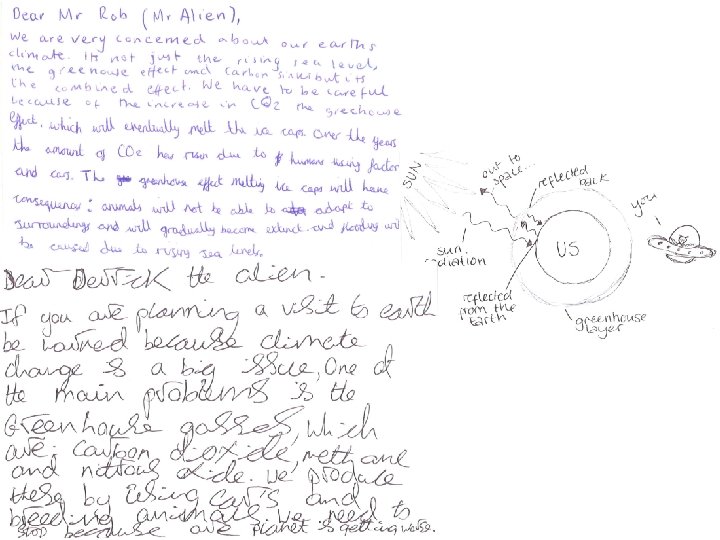 Dear Mr Rob (Mr Alien),
We are very concerned about our earths
climate. Its not just the rising sea level,
the greenhouse effect and carbon sinks but its
the combined effect. We have to be careful
because of the increase in CO2 the greehouse
effect, which will eventually melt the ice caps. Over the years
the amount of CO2 has risen due to humans using factor
and cars. The greenhouse effect melting ice caps will have
consequence: animals will not be able to adapt to
surroundings and will gradually become extinct. and flooding will
be caused due to rising sea levels.
SUN
out to
space...
reflected
back
you
sun
diation
US
reflected
from the
Earth
greenhouse
layer
Dear Derrick the alien.
If you are planning a visit to earth
be warned because climate
change is a big issue, One of
the main problems is the
Greenhouse gasses, which
are; carbon dioxide, methane
and nitrous oxide. We produce
these by using cars and
breeding animals. We need to
stop because are planet is getting worse.